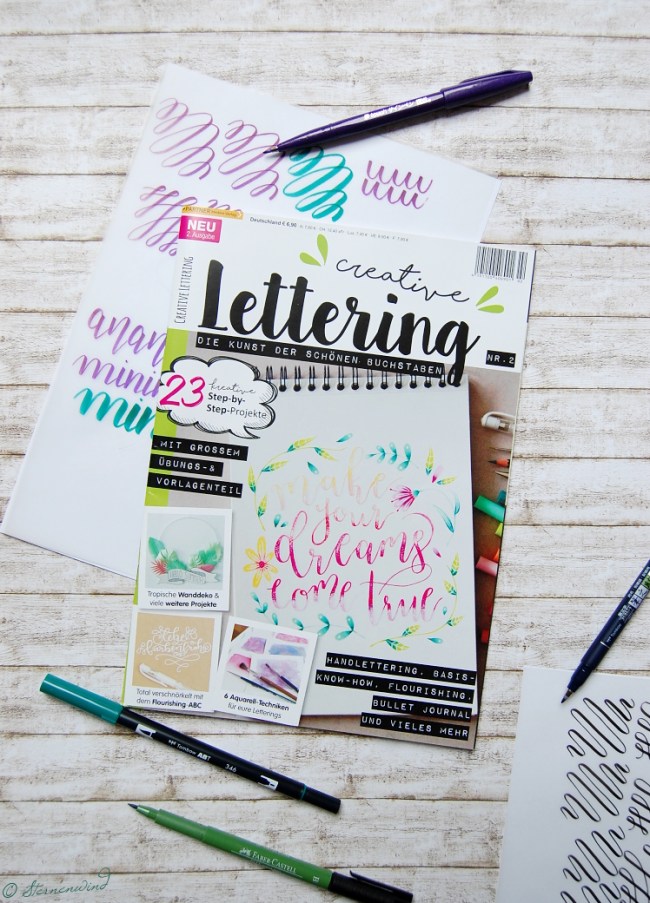 NEU
2. Ausgabe
Deutschland € 6,90
CREATIVE LETTERING
creative
Lettering
DIE KUNST DER SCHÖNEN BUCHSTABEN
NR.2
23
kreative
Step-by-
Step-Projekte
MIT GROSSEM
ÜBUNGS-&
VORLAGENTEIL
make
your
dreams
come true
Tropische Wanddeko &
viele weitere Projekte
Total verschnörkelt mit
dem Flourishing ABC
6 Aquarell-Techniken
für eure Letterings
HANDLETTERING, BASIS-
KNOW-HOW, FLOURISHING,
BULLET JOURNAL
UND VIELES MEHR
Tombow ABT
346
FABER CASTELL
© Sternenwind